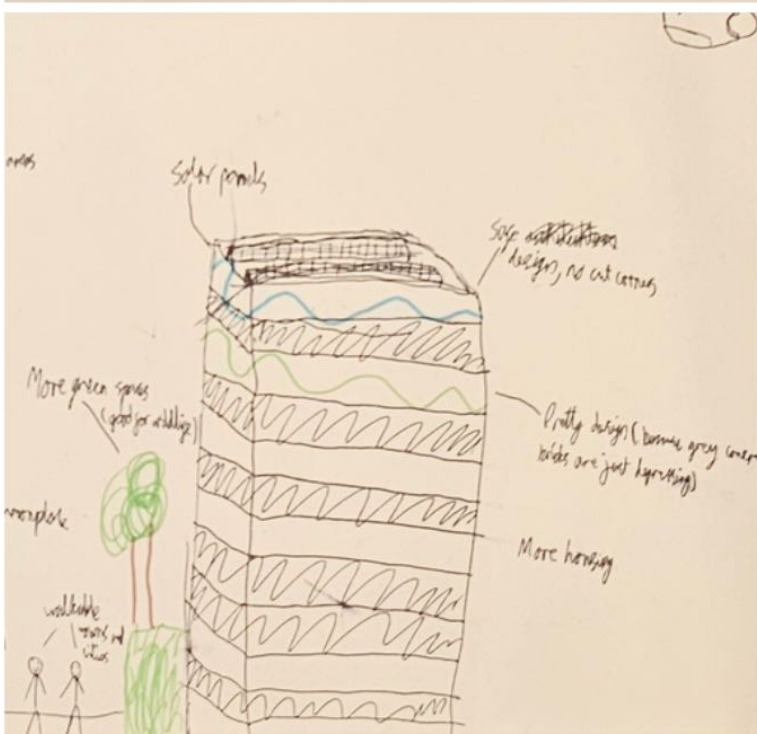 areas
Solar panels
Safe
design, no cut corners
More green spaces
(good for wildlife)
Pretty design (because grey
bricks are just depressing)
More housing
walkable
towns and
cities